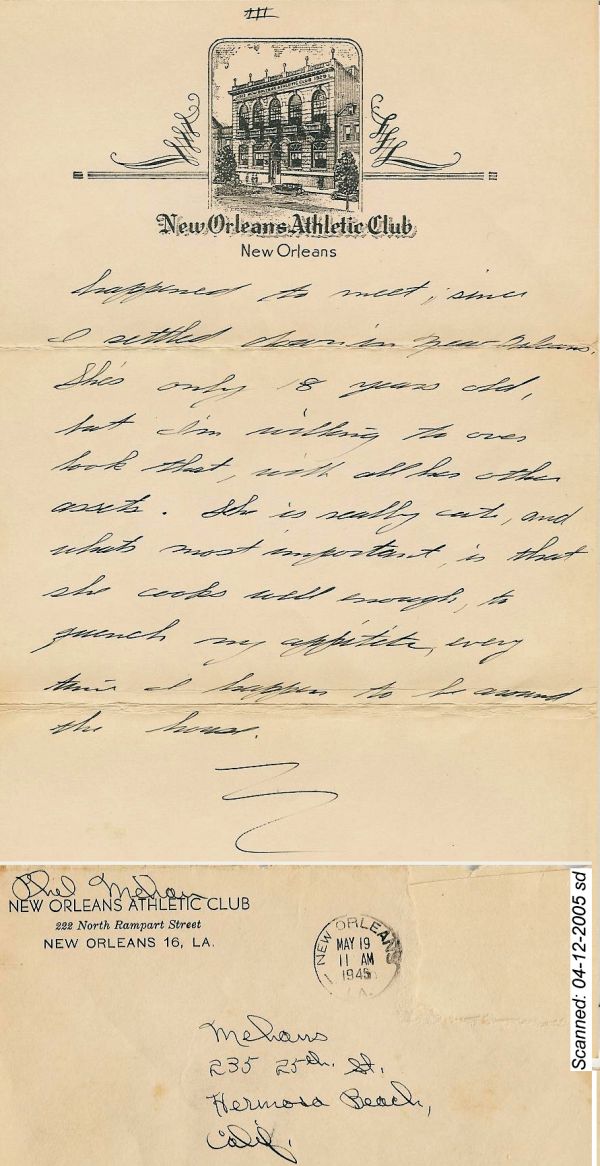 III
New Orleans Athletic Club
New Orleans
happened to meet, since
I settled down in New Orleans.
She's only 18 years old,
but I'm willing to over
look that, with all her other
assets. She is really cute, and
whats most important, is that
she cooks well enough, to
quench my appetite, every
time I happen to be around
the house.
Phil Mehan
NEW ORLEANS ATHLETIC CLUB
222 North Rampart Street
NEW ORLEANS 16, LA.
NEW ORLEANS
MAY 19
11 AM
1945
LA.
Mehans
235 25th. St.
Hermosa Beach,
Calif.
Scanned: 04-12-2005 sd